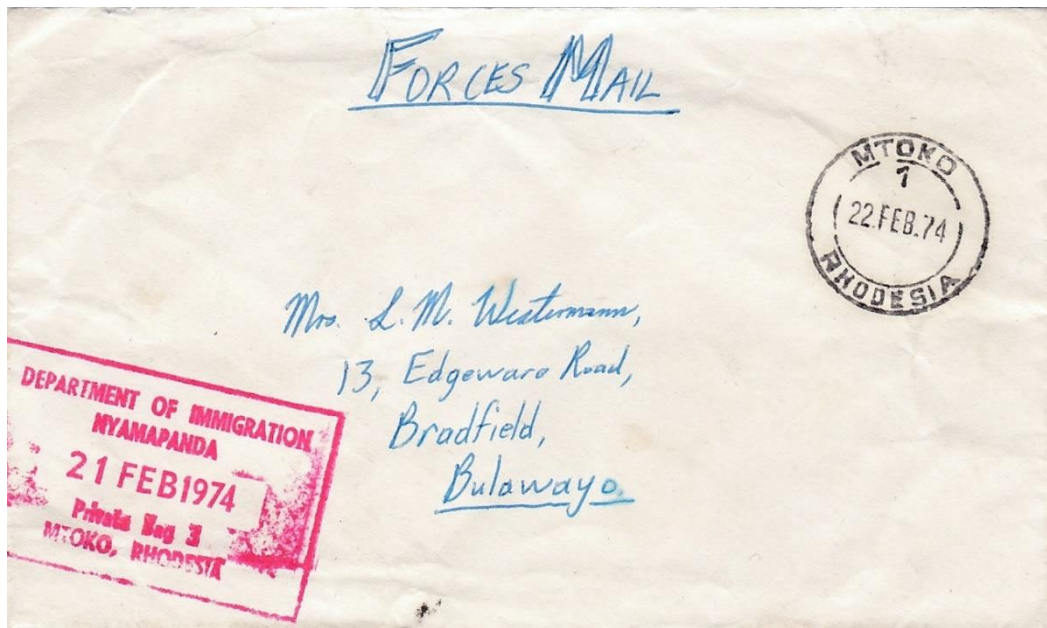 FORCES MAIL
MTOKO
1
22.FEB.74
RHODESIA
Mrs. L. M. Westermann,
13, Edgeware Road,
Bradfield,
Bulawayo.
DEPARTMENT OF IMMIGRATION
NYAMAPANDA
21 FEB 1974
Private Bag
MTOKO, RHODESIA